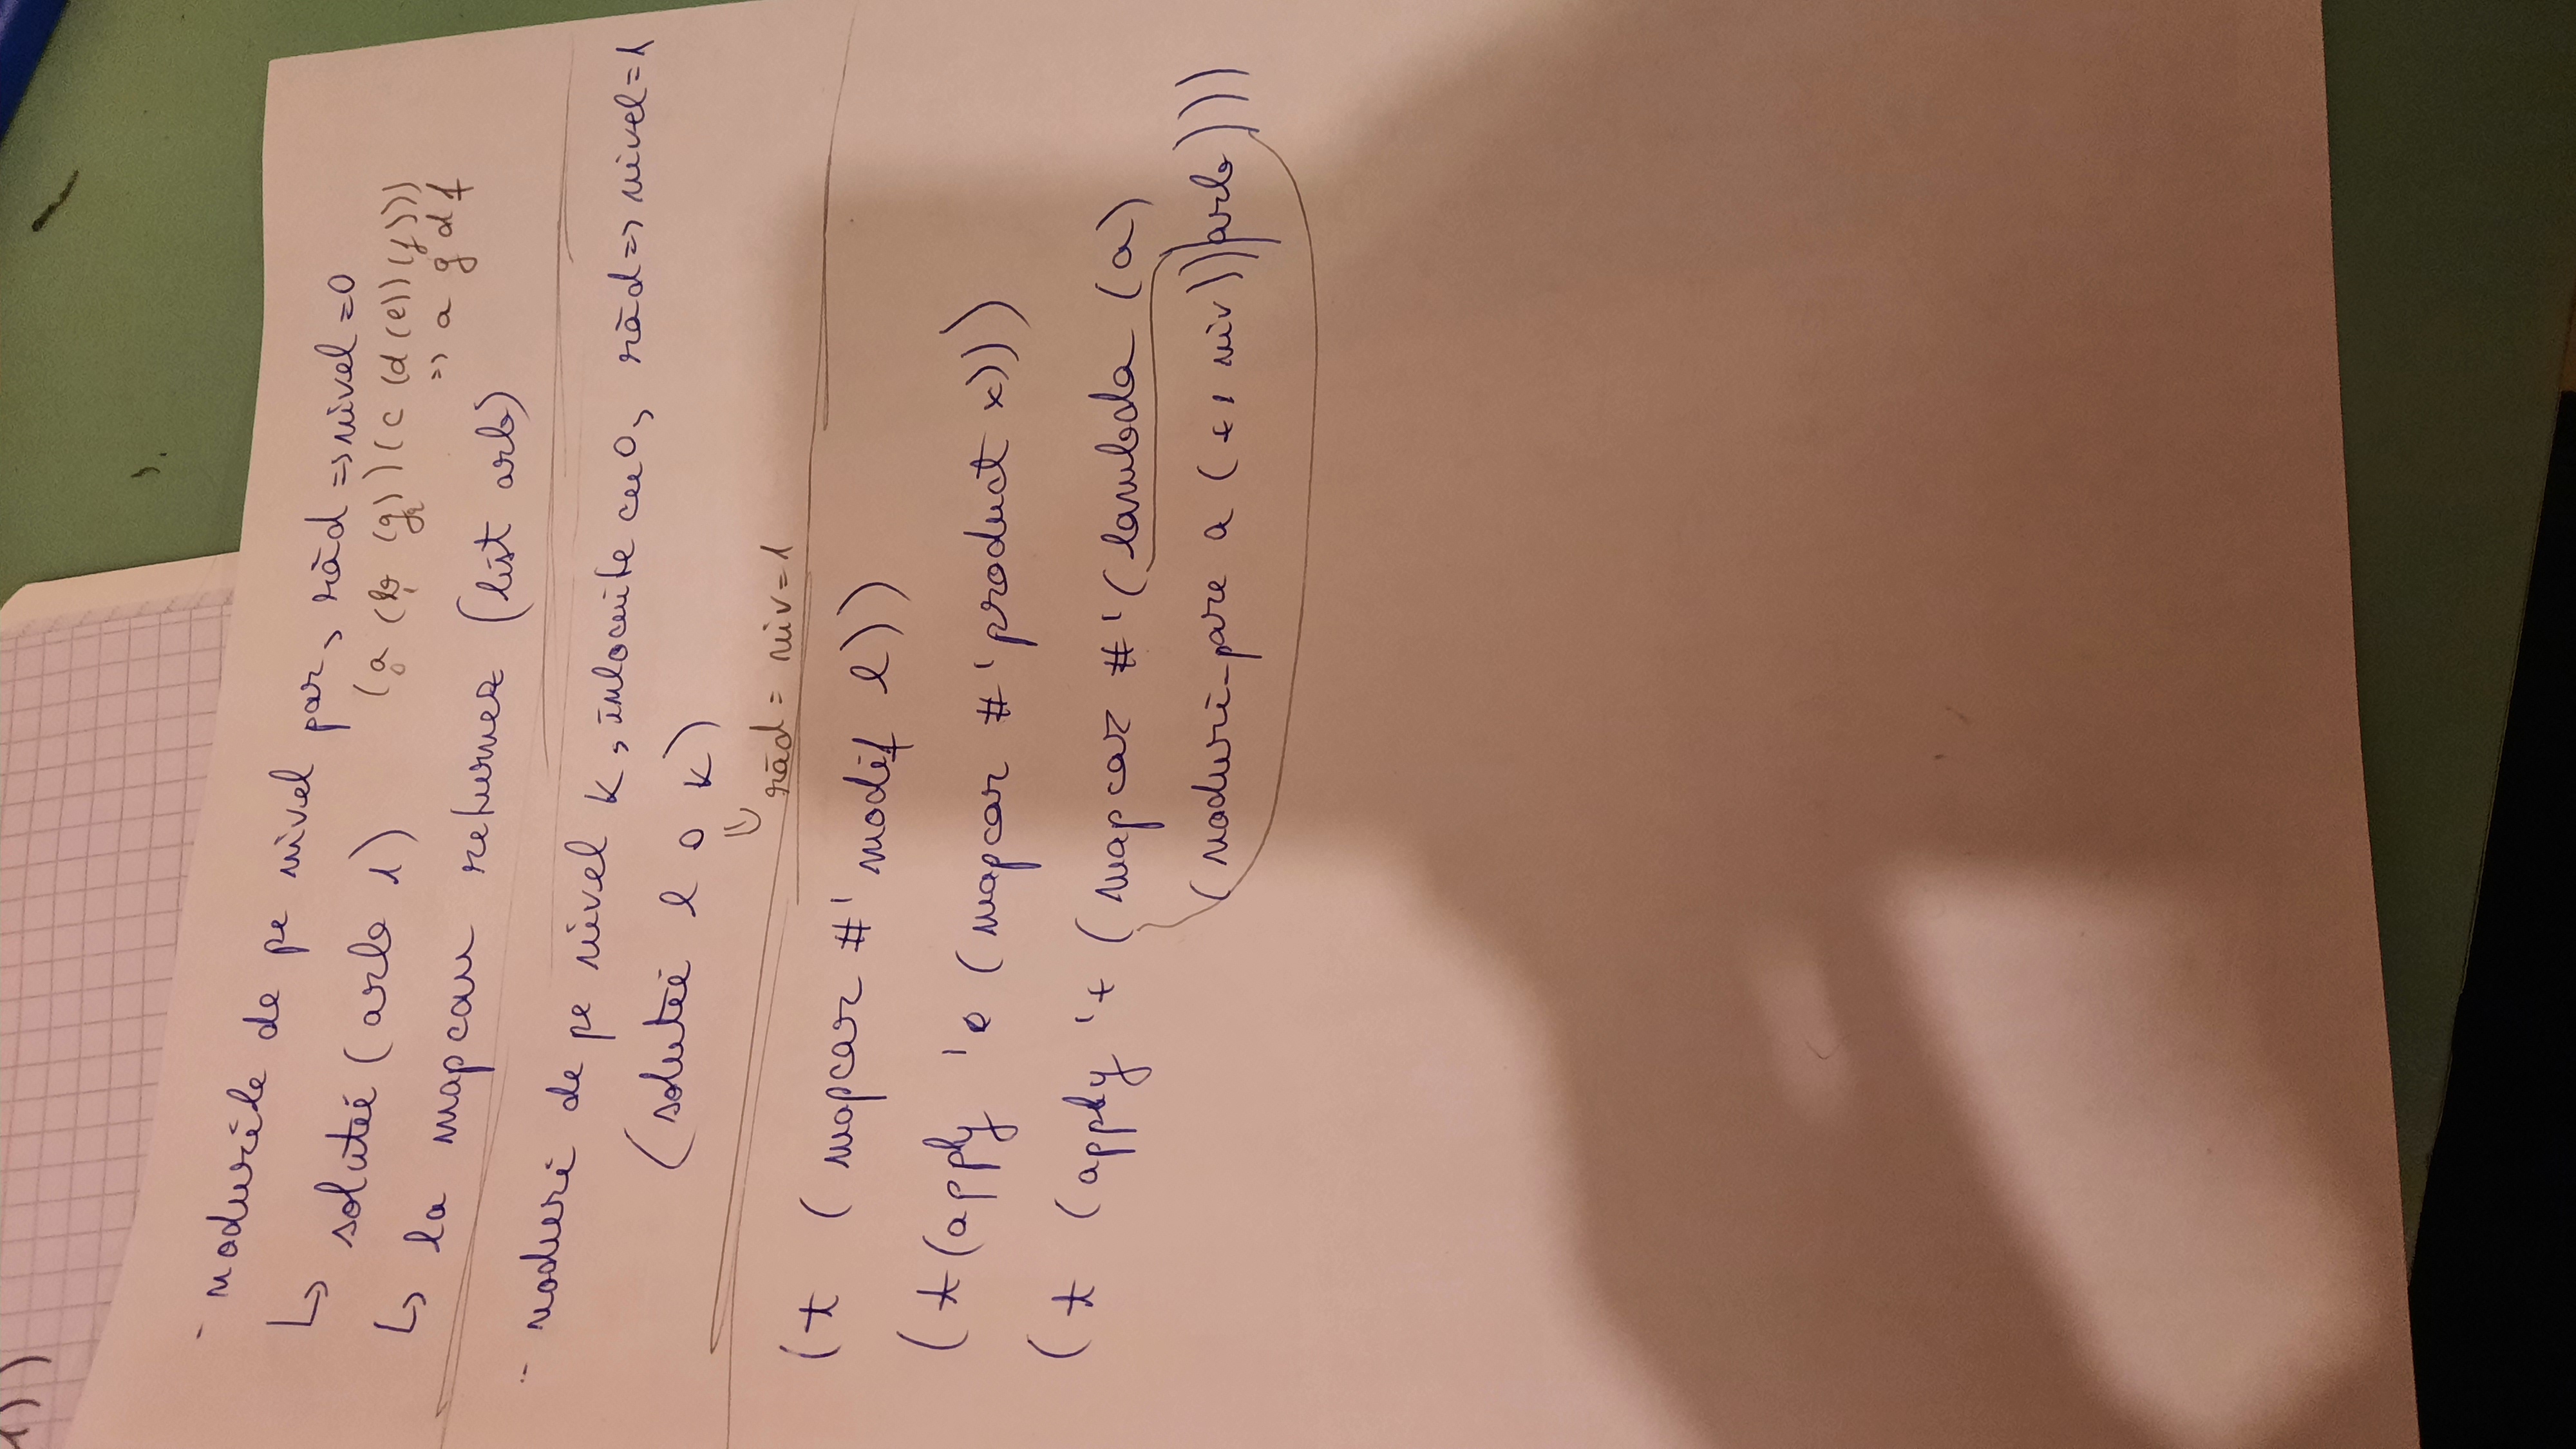 1))
- nodurile de pe nivel par, răd => nivel = 0
↳ soluție (arb 1) (a (b (g)) (c (d (e)) (f)))
0 1 2
=> a g d f
↳ la mapcan returnez (list arb)
- noduri de pe nivel k, înlocuite cu 0, răd => nivel = 1
(soluție l 0 k)
⇓ răd = niv = 1
(t (mapcar #' modif l))
(t (apply ' (mapcar #' product x)))
(t (apply '+ (mapcar #' (lambda (a)
(noduri-pare a (+ 1 niv)) arb)))